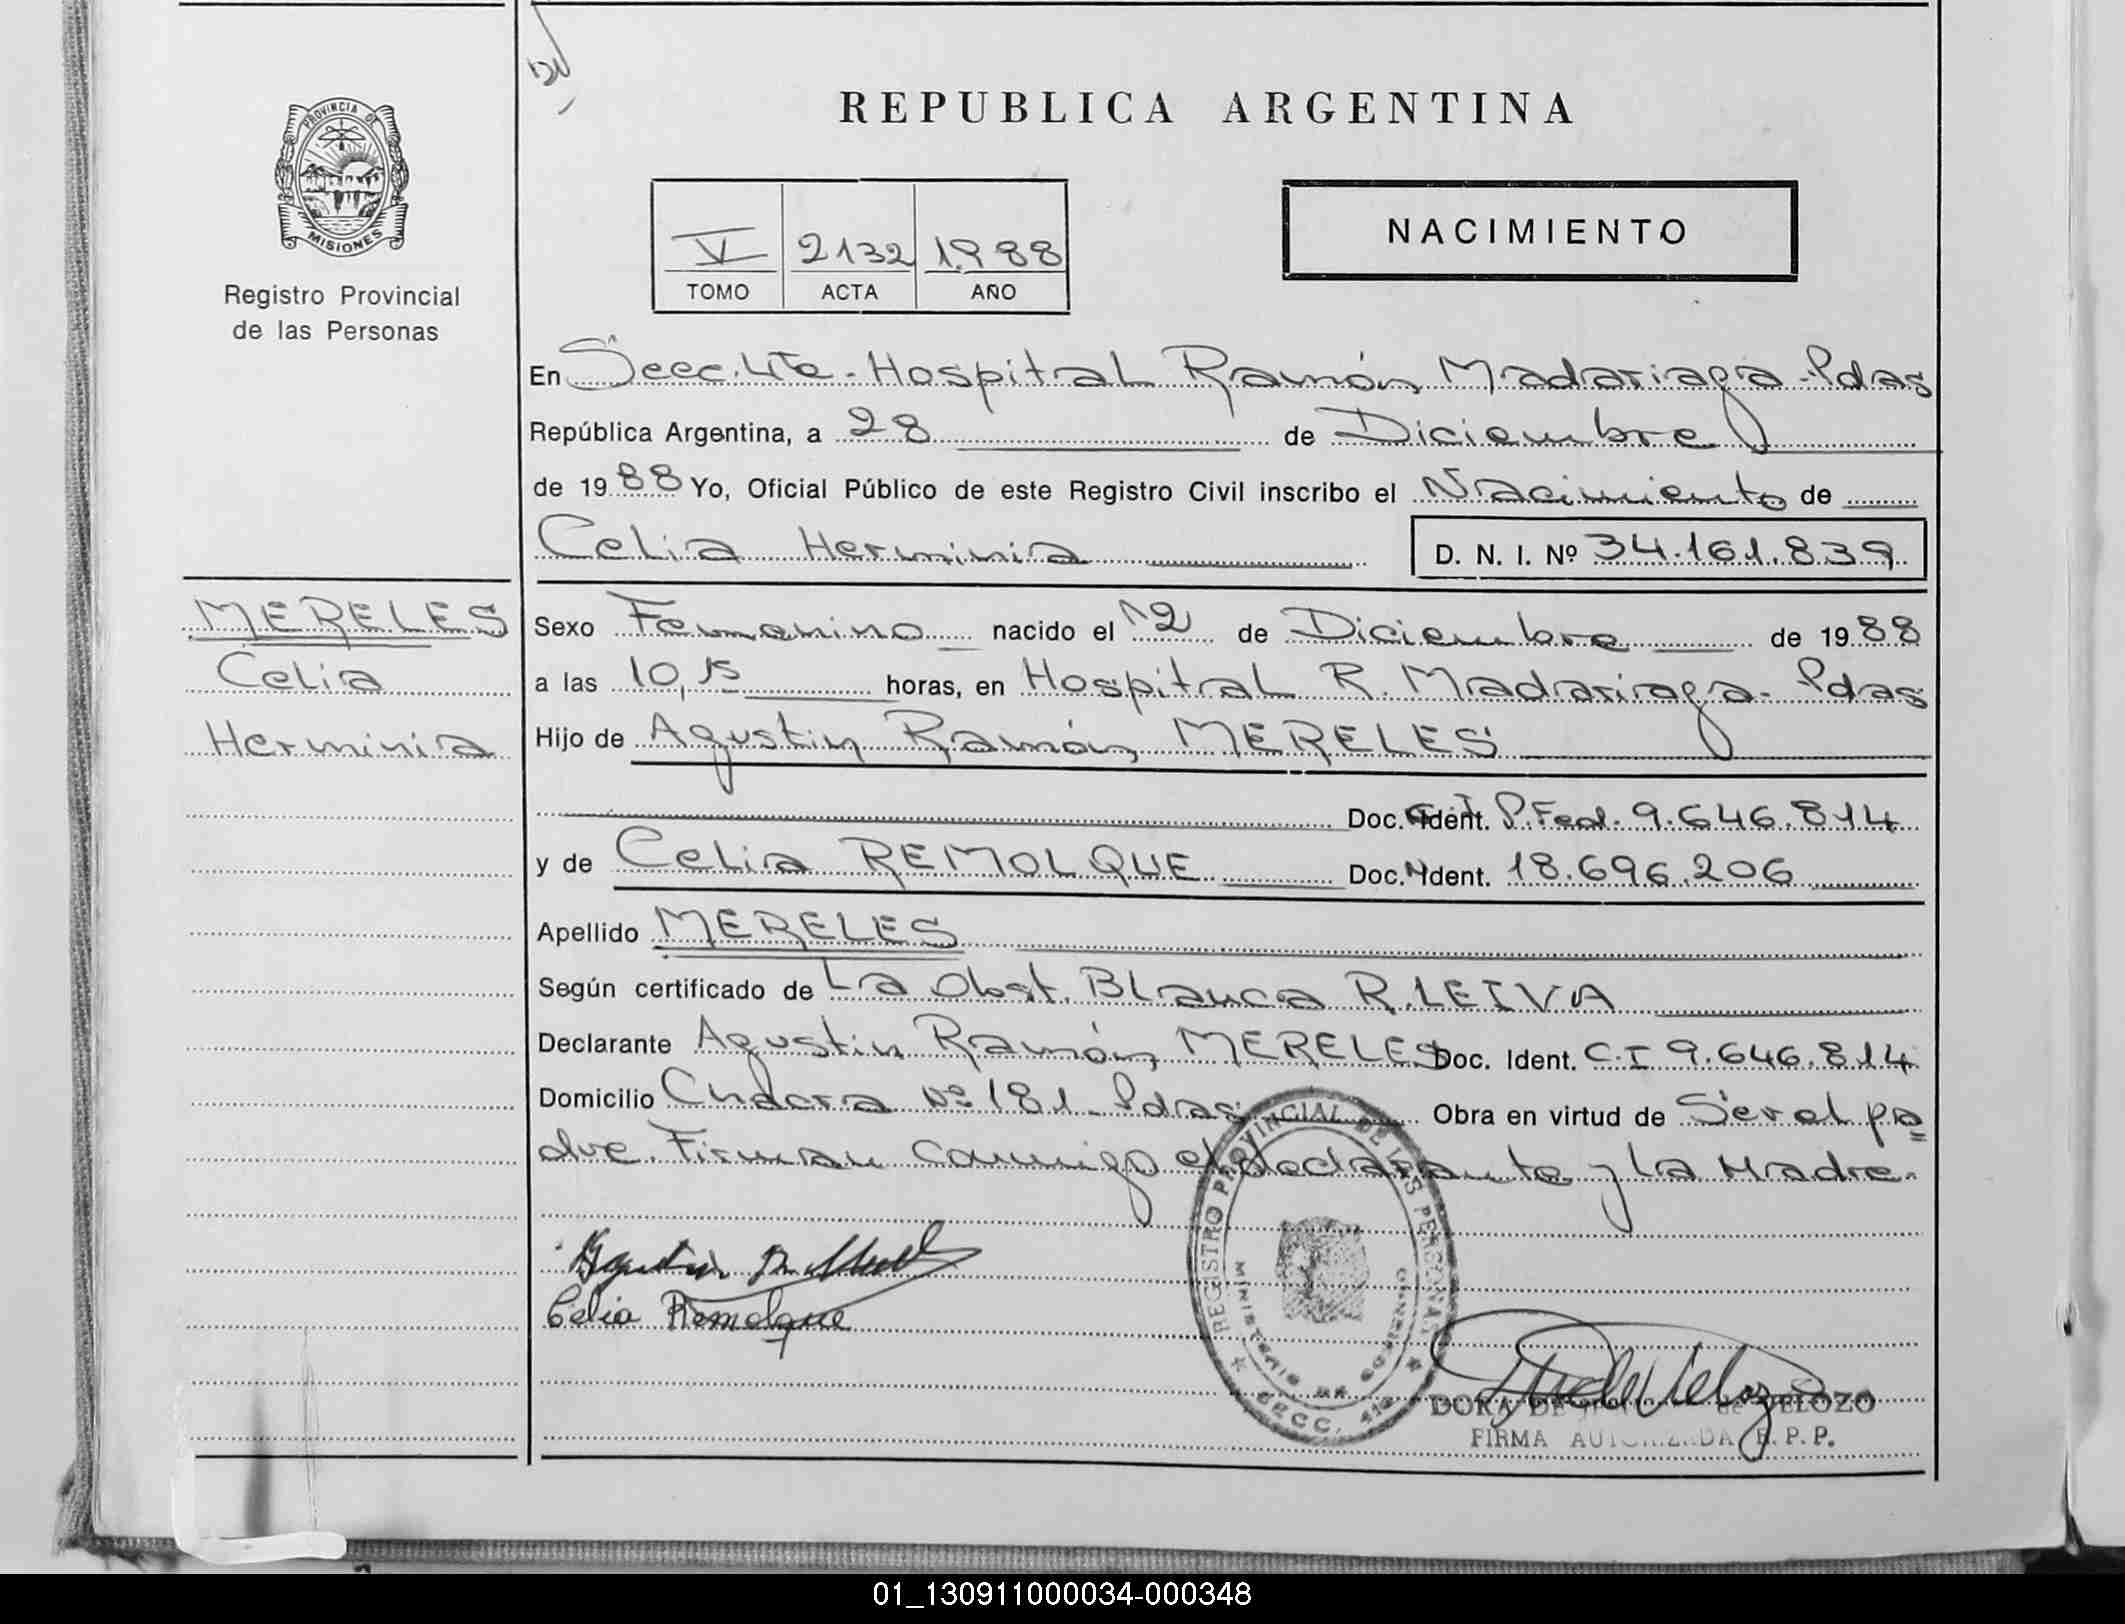 PROVINCIA DE
MISIONES
Registro Provincial
de las Personas
REPUBLICA ARGENTINA
V 2132 1988
TOMO ACTA AÑO
NACIMIENTO
En Secc. 4ta. Hospital Ramón Madariaga - Pdas
República Argentina, a 28 de Diciembre
de 1988 Yo, Oficial Público de este Registro Civil inscribo el Nacimiento de
Celia Herminia D. N. I. Nº 34.161.839
MERELES
Celia
Herminia
Sexo Femenino nacido el 12 de Diciembre de 1988
a las 10,15 horas, en Hospital R. Madariaga - Pdas
Hijo de Agustin Ramón MERELES
Doc. Ident. P. Fed. 9.646.814
y de Celia REMOLQUE Doc. Ident. 18.696.206
Apellido MERELES
Según certificado de La Obst. Blanca R. LEIVA
Declarante Agustin Ramón MERELES Doc. Ident. C.I 9.646.814
Domicilio Chacra Nº 181 - Pdas Obra en virtud de Ser el pa=
dre. Firman conmigo el declarante y La Madre.
REGISTRO PROVINCIAL DE LAS PERSONAS
MINISTERIO DE GOBIERNO
SECC. 4ta
Celia Remolque
DORA DE VELOZO
FIRMA AUTORIZADA R. P. P.
01_130911000034-000348